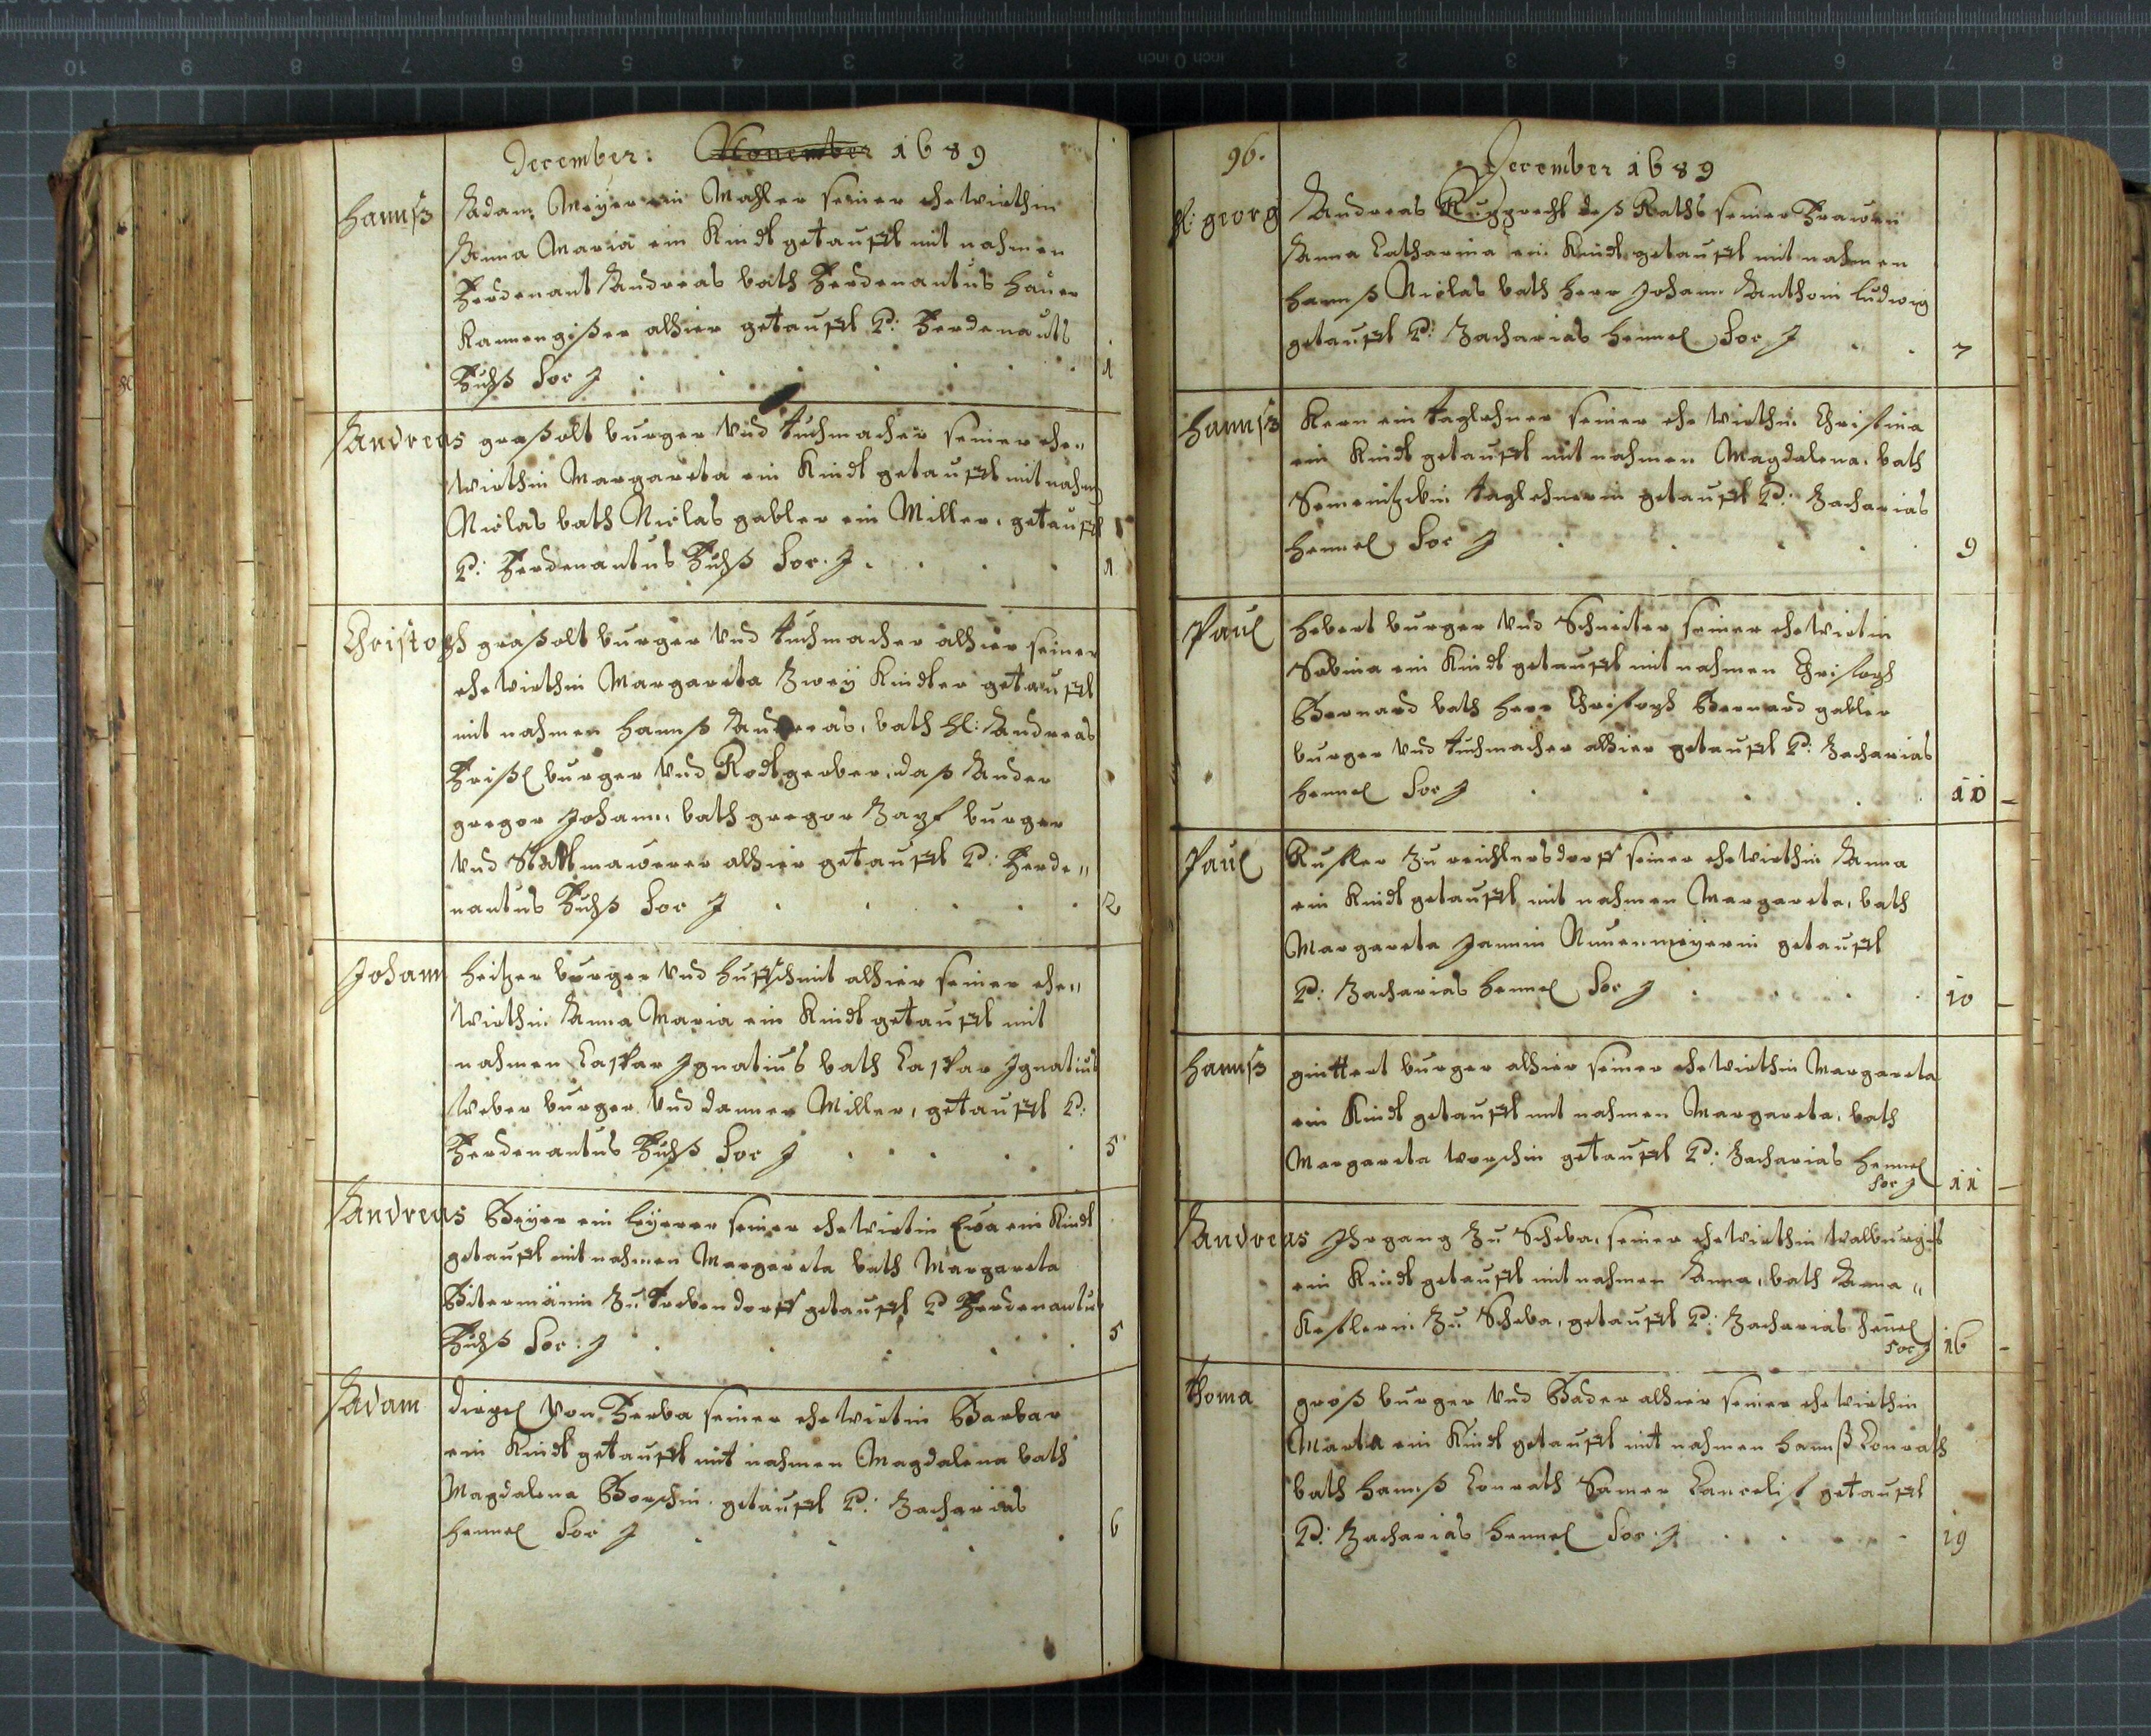 December: November 1689
Hannß Adam Meyer ein Mahler seiner ehewirthin
Anna Maria ein Kindt getaufft mit nahmen
Ferdenant Andreas bath Ferdenantus Hauer
Kannengißer alhier getaufft P: Ferdenants
Fuhß Soc J 1
Andreas graßolt burger Vnd tuchmacher seiner ehe„
wirthin Margareta ein Kindt getaufft mit nahm
Niclas bath Niclas gabler ein Miller, getaufft
P: Ferdenantus Fuhß Soc. J. 1
Christoph graßolt burger Vnd tuchmacher alhier seiner
ehewirthin Margareta Zwey Kindter getaufft
mit nahmen Hannß Andreas, bath H: Andreas
Frißl burger Vnd Rodtgerber, daß Ander
gregor Johann, bath gregor Zapf burger
Vnd Stattmawerer alhier getaufft P: Ferde„
nantus Fuhß Soc J 2
Johann Heitzer burger Vnd Huffschmit alhier seiner ehe„
wirthin Anna Maria ein Kindt getaufft mit
nahmen Caspar Ignatius bath Caspar Ignatius
Weber burger Vnd danner Miller, getaufft P:
Ferdenantus Fuhß Soc J 5
Andreas Beyer ein leyerer seiner ehewirtin Eva ein Kindt
getaufft mit nahmen Margareta bath Margareta
Bitermänin Zu trebendorff getaufft P Ferdenantus
Fuhß Soc: J 5
Adam dirgel Von Ferba seiner ehewirtin Barbar
ein Kindt getaufft mit nahmen Magdalena bath
Magdalena Borschin getaufft P: Zacharias
Hennel Soc J 6
96.
December 1689
H: georg Andreas Rupprecht deß Raths seiner Frawen
Anna Catharina ein Kindt getaufft mit nahmen
Hannß Niclas bath Herr Johann Anthoni ludwig
getaufft P: Zacharias Hennel Soc J 7
Hannß Kern ein taglehner seiner ehewirthin Christina
ein Kindt getaufft mit nahmen Magdalena, bath
taglehnerin getaufft P: Zacharias
Hennel Soc J 9
Paul Hebert burger Vnd Schneiter seiner ehewirtin
Sabina ein Kindt getaufft mit nahmen Christoph
Bernard bath Herr Christoph Bernard gabler
burger Vnd tuchmacher alhier getaufft P: Zacharias
Hennel Soc J 10
Paul Rustler Zu reichlersdorff seiner ehewirthin Anna
ein Kindt getaufft mit nahmen Margareta, bath
Margareta Jannin getaufft
P: Zacharias Hennel Soc J 10
Hannß gintert burger alhier seiner ehewirthin Margareta
ein Kindt getaufft mit nahmen Margareta, bath
Margareta worschin getaufft P: Zacharias Hennel
Soc J 11
Andreas Ihrgang Zu Scheba, seiner ehewirthin walburgis
ein Kindt getaufft mit nahmen Anna, bath Anna„
Kestlerin Zu Scheba, getaufft P: Zacharias Hen̄el
Soc J 16
thoma groß burger Vnd Bader alhier seiner ehewirthin
Marta ein Kindt getaufft mit nahmen Hannß Conrath
bath Hannß Conrath Samer Cancelist getaufft
P: Zacharias Hennel Soc. J 19